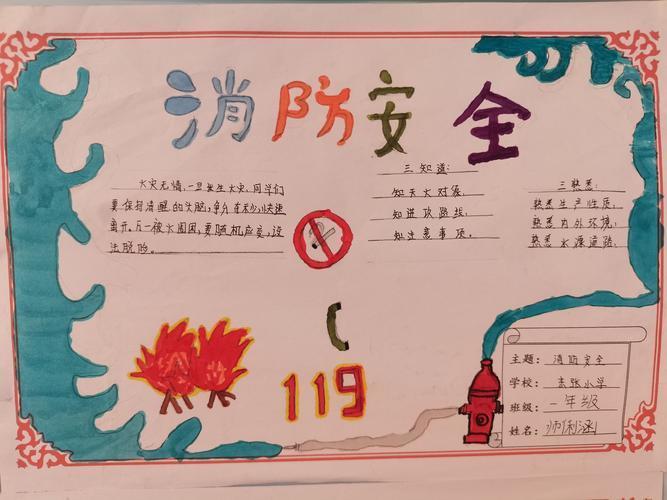 消防安全
火灾无情,一旦发生火灾,同学们
要保持清醒的头脑,争分夺秒,快速
离开。万一被火围困,要随机应变,设
法脱险。
三知道:
知灭火对象,
知进攻路线,
知注意事项。
三熟悉:
熟悉生产性质,
熟悉内外环境,
熟悉水源道路。
119
主题:消防安全
学校:张小学
班级:一年级
姓名: